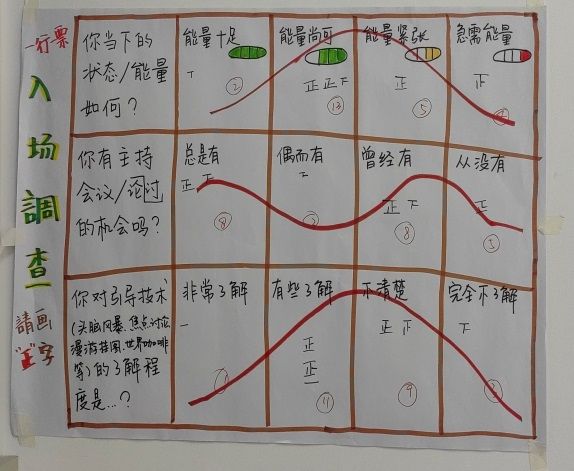 一行一票
入
场
調
查
請画
"正"字
你当下的
状态/能量
如何？
能量十足
②
能量尚可
正正下
⑬
能量紧张
正
⑤
急需能量
正
你有主持
会议/论过
的机会吗？
总是有
正下
⑧
偶而有
曾经有
正下
⑧
从没有
正
⑤
你对引导技术
(头脑风暴、焦点讨论
漫游挂图、世界咖啡
等)的了解程
度是...？
非常了解
一
有些了解
正
正
一
⑪
不清楚
正下
完全不了解
下